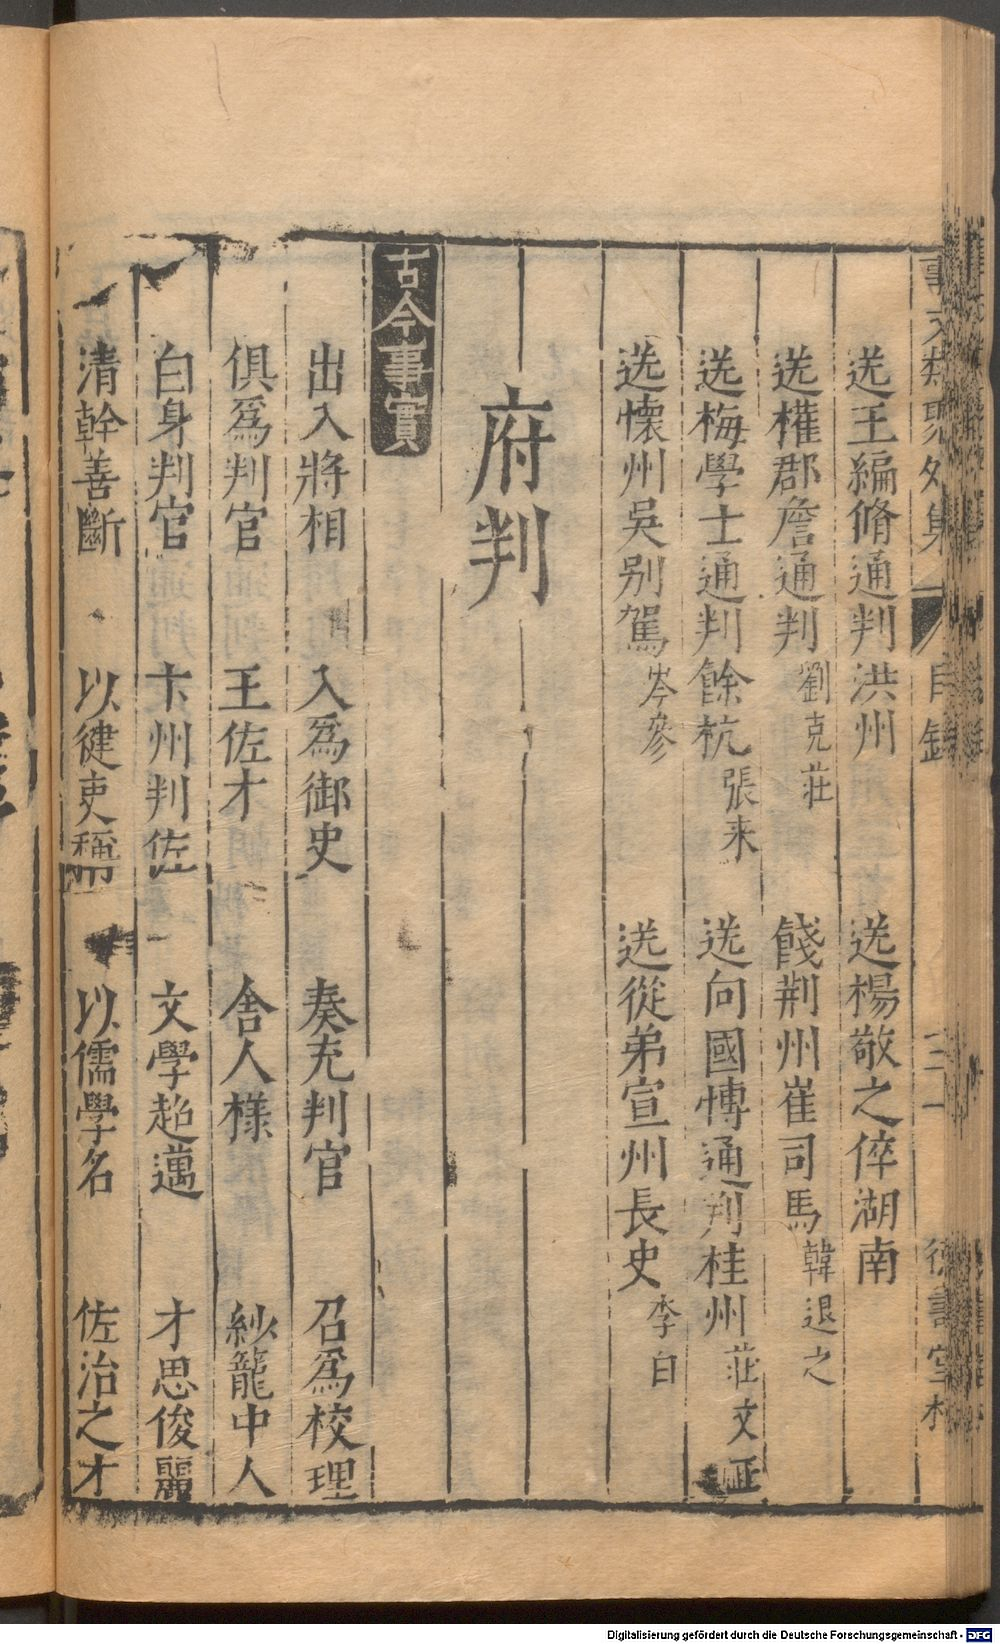 事文類聚外集 目錄 三 德壽堂梓
送王編脩通判洪州 送楊敬之倅湖南
送權郡詹通判 劉克莊 餞荆州崔司馬 韓退之
送梅學士通判餘杭 張耒 送向國博通判桂州 莊文正
送懷州吳别駕 岑參 送從弟宣州長史 李白
府判
古今事實
出入將相 入爲御史 奏充判官 召爲校理
俱爲判官 王佐才 舍人樣 紗籠中人
白身判官 卞州判佐 文學超邁 才思俊麗
清幹善斷 以健吏稱 以儒學名 佐治之才
Digitalisierung gefördert durch die Deutsche Forschungsgemeinschaft - DFG